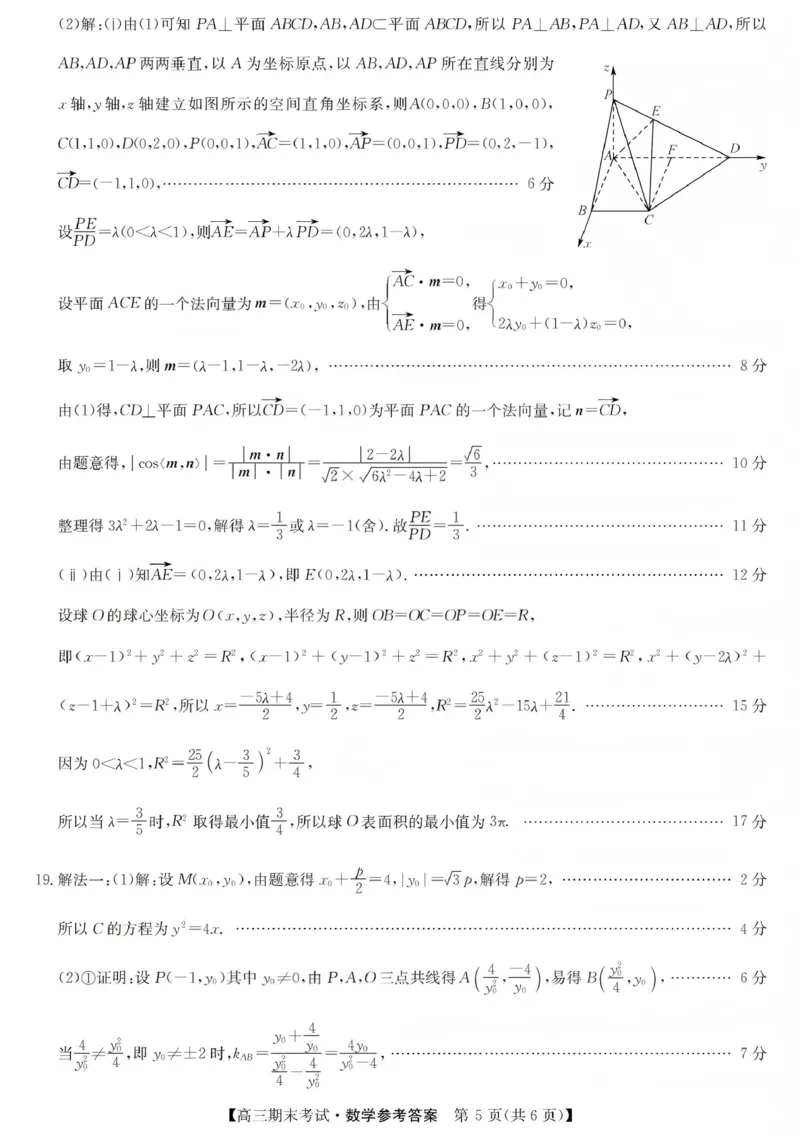 (2)解:(ⅰ)由(1)可知 PA⊥平面 ABCD,AB,AD⊂平面 ABCD,所以 PA⊥AB,PA⊥AD,又 AB⊥AD,所以
AB,AD,AP 两两垂直,以 A 为坐标原点,以 AB,AD,AP 所在直线分别为
x 轴,y 轴,z 轴建立如图所示的空间直角坐标系,则A(0,0,0),B(1,0,0),
C(1,1,0),D(0,2,0),P(0,0,1),\overrightarrow{AC}=(1,1,0),\overrightarrow{AP}=(0,0,1),\overrightarrow{PD}=(0,2,-1),
\overrightarrow{CD}=(-1,1,0),…… 6 分
z
P
E
A
F
D
y
B
C
x
设\frac{PE}{PD}=λ(0<λ<1),则\overrightarrow{AE}=\overrightarrow{AP}+λ\overrightarrow{PD}=(0,2λ,1-λ),
设平面 ACE 的一个法向量为 m=(x₀,y₀,z₀),由{\overrightarrow{AC}·m=0, \overrightarrow{AE}·m=0, 得{x₀+y₀=0, 2λy₀+(1-λ)z₀=0,
取 y₀=1-λ,则 m=(λ-1,1-λ,-2λ), …… 8 分
由(1)得,CD⊥平面 PAC,所以\overrightarrow{CD}=(-1,1,0)为平面 PAC 的一个法向量,记 n=\overrightarrow{CD},
由题意得,|cos⟨m,n⟩|=\frac{|m·n|}{|m|·|n|}=\frac{|2-2λ|}{\sqrt{2}×\sqrt{6λ²-4λ+2}}=\frac{\sqrt{6}}{3},…… 10 分
整理得 3λ²+2λ-1=0,解得 λ=\frac{1}{3}或 λ=-1(舍).故\frac{PE}{PD}=\frac{1}{3}. …… 11 分
(ⅱ)由(ⅰ)知\overrightarrow{AE}=(0,2λ,1-λ),即 E(0,2λ,1-λ). …… 12 分
设球 O 的球心坐标为 O(x,y,z),半径为 R,则 OB=OC=OP=OE=R,
即(x-1)²+y²+z²=R²,(x-1)²+(y-1)²+z²=R²,x²+y²+(z-1)²=R²,x²+(y-2λ)²+
(z-1+λ)²=R²,所以 x=\frac{-5λ+4}{2},y=\frac{1}{2},z=\frac{-5λ+4}{2},R²=\frac{25}{2}λ²-15λ+\frac{21}{4}. …… 15 分
因为 0<λ<1,R²=\frac{25}{2}(λ-\frac{3}{5})²+\frac{3}{4},
所以当 λ=\frac{3}{5}时,R² 取得最小值\frac{3}{4},所以球 O 表面积的最小值为 3π. …… 17 分
19. 解法一:(1)解:设 M(x₀,y₀),由题意得 x₀+\frac{p}{2}=4,|y₀|=\sqrt{3}p,解得 p=2, …… 2 分
所以 C 的方程为 y²=4x. …… 4 分
(2)①证明:设 P(-1,y₀)其中 y₀≠0,由 P,A,O 三点共线得 A(\frac{4}{y₀²},\frac{-4}{y₀}),易得 B(\frac{y₀²}{4},y₀), …… 6 分
当\frac{4}{y₀²}≠\frac{y₀²}{4},即 y₀≠±2 时,k_{AB}=\frac{y₀+\frac{4}{y₀}}{\frac{y₀²}{4}-\frac{4}{y₀²}}=\frac{4y₀}{y₀²-4}, …… 7 分
【高三期末考试·数学参考答案 第 5 页(共 6 页)】